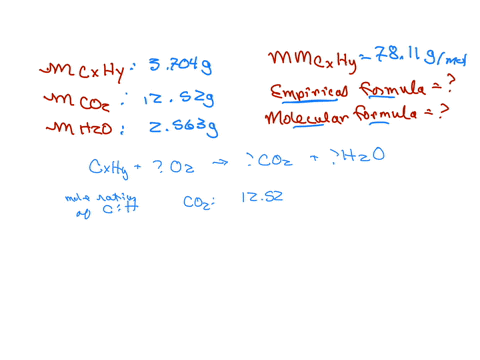 mCxHy: 3.704g
mCO2: 12.52g
mH2O: 2.563g
MMCxHy = 78.11g/mol
Empirical formula = ?
Molecular formula = ?
CxHy + ? O2 → ?CO2 + ?H2O
mole ratios
of C:H
CO2: 12.52